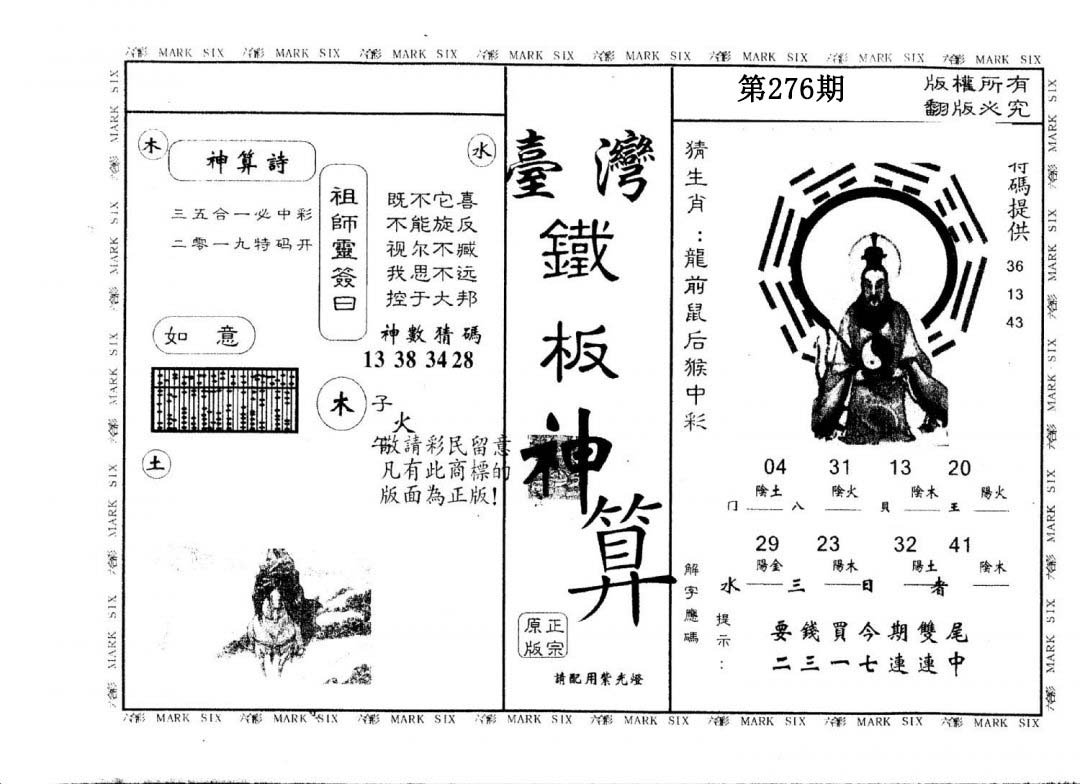 六合彩 MARK SIX 六合彩 MARK SIX 六合彩 MARK SIX 六合彩 MARK SIX 六合彩 MARK SIX 六合彩 MARK SIX 六合彩 MARK SIX 六合彩 MARK SIX
第276期
版權所有
翻版必究
木
神算詩
水
三五合一必中彩
二零一九特码开
祖師靈簽曰
既不它喜
不能旋反
视尔不臧
我思不远
控于大邦
神數猜碼
13 38 34 28
如意
木
子
火
午
敬請彩民留意
凡有此商標的
版面為正版!
土
臺灣
鐵
板
神
算
正宗
原版
請配用紫光燈
猜生肖：龍前鼠后猴中彩
碼提供
36
13
43
04 31 13 20
陰土 陰火 陰木 陽火
门 八 貝 王
29 23 32 41
陽金 陽木 陽土 陰木
水 三 日 者
解字應碼
提示：
要錢買今期雙尾
二三一七連連中
六合彩 MARK SIX 六合彩 MARK SIX 六合彩 MARK SIX 六合彩 MARK SIX 六合彩 MARK SIX 六合彩 MARK SIX 六合彩 MARK SIX 六合彩